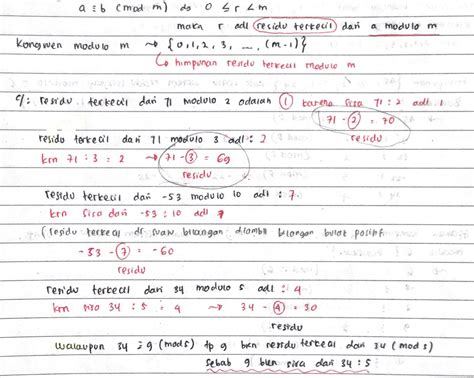 a ≡ b (mod m) dg 0 ≤ r < m
maka r adl residu terkecil dari a modulo m
kongruen modulo m → {0, 1, 2, 3, ..., (m-1)}
↳ himpunan residu terkecil modulo m
c/: residu terkecil dari 71 modulo 2 adalah 1 karena sisa 71 : 2 adl 1
71 - 2 = 70
residu
residu terkecil dari 71 modulo 3 adl : 2
krn 71 : 3 = 2 → 71 - 3 = 69
residu
residu terkecil dari -53 modulo 10 adl : 7
krn sisa dari -53 : 10 adl 7
(residu terkecil dr suatu bilangan diambil bilangan bulat positif
-53 - 7 = -60
residu
residu terkecil dari 34 modulo 5 adl : 4
krn sisa 34 : 5 = 4 → 34 - 4 = 30
residu
walaupun 34 ≡ 9 (mod 5) tp 9 bkn residu terkecil dari 34 (mod 5)
sebab 9 bkn sisa dari 34 : 5